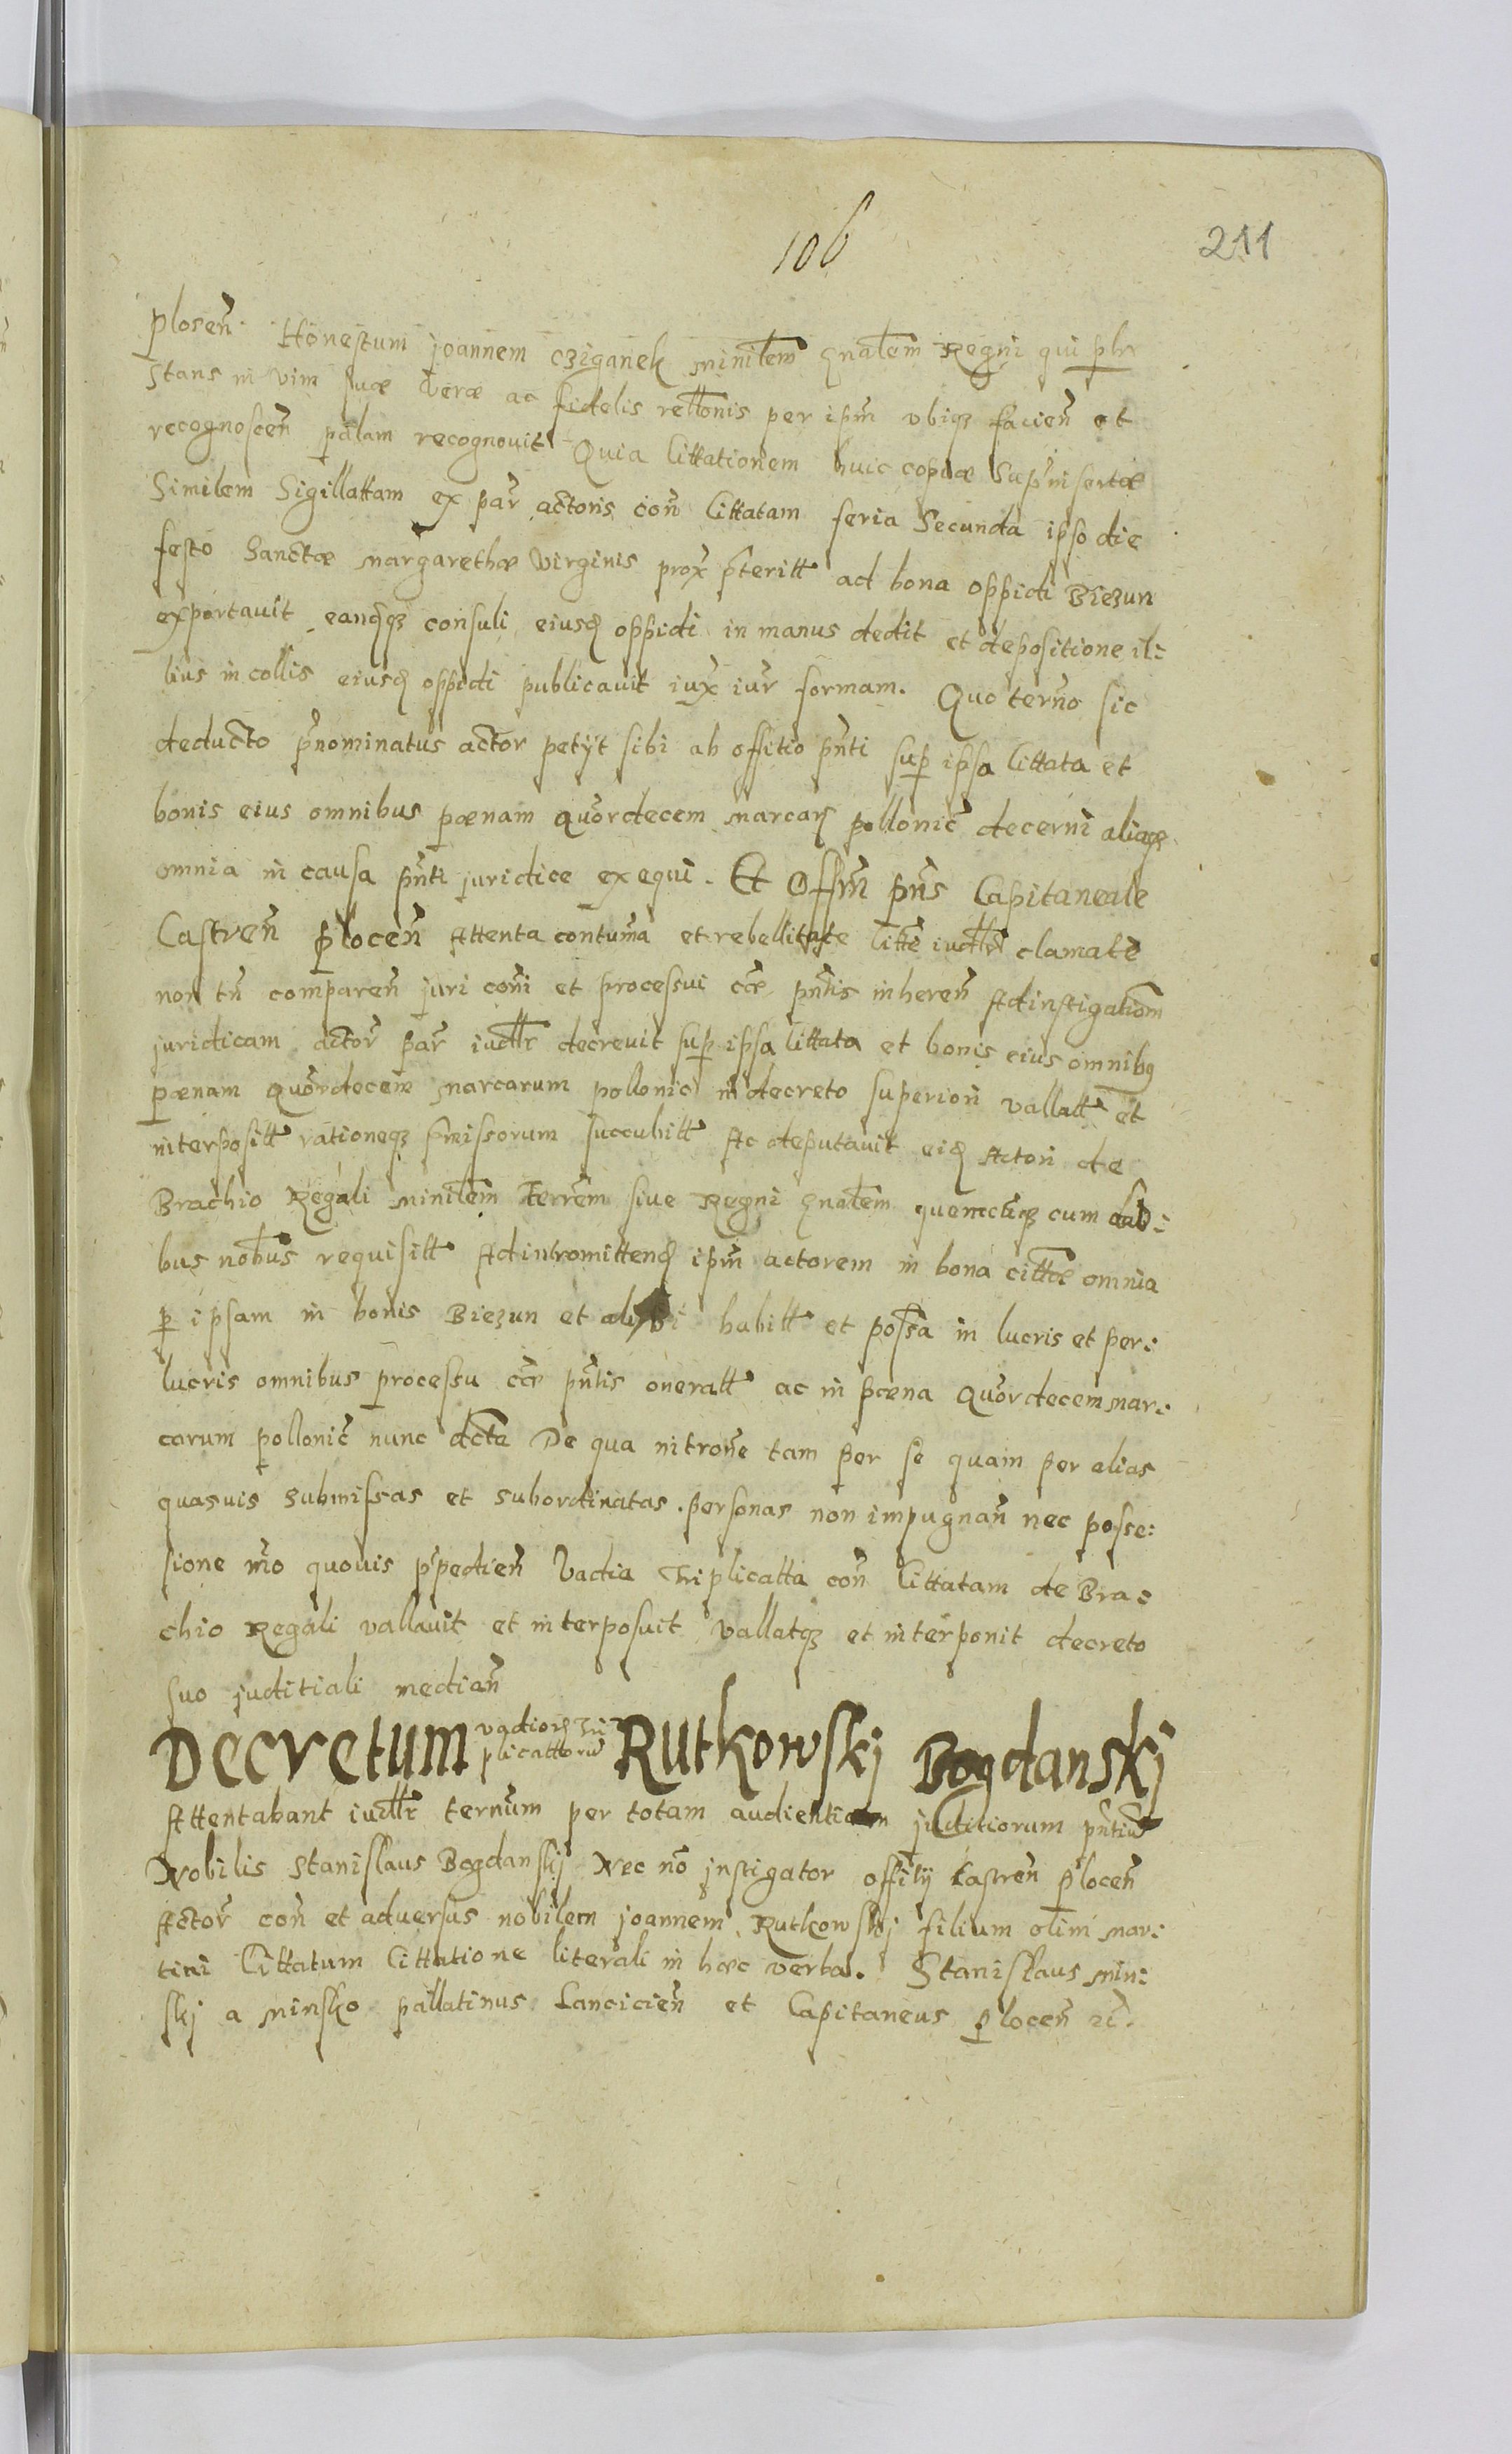 106
211
plosen̄. Honestum joannem cziganek minilem̄ gn̄alem̄ Regni qui p̱ln̄
stans in vim suæ veræ ac fidelis rel̄lonis per ipm̄ vbiq3 facien̄ et
recognoscen̄ palam recognouit Quia littationem huic copiæ Sup̄ insertæ
Similem Sigillattam ex par̄ actoris con̄ littatam feria Secunda ipso die
festo Sanctæ margarethæ virginis prox̄ p̄teritt̄ ad bona oppidi Biezun
exportauit eandq3 consuli eiusd oppidi in manus dedit et depositione il:
lius in collis eiusd oppidi publicauit iux̄ iur̄ formam. Quo tern̄o sic
deducto p̄nominatus actor petÿt sibi ab offitio pn̄ti sup̱ ipsa littata et
bonis eius omnibus pænam quor̄decem marcar̄ pollonic̄ decerni aliaq3
omnia in causa pn̄ti juridice exequi. Et Offm̄ pn̄s Capitaneale
Castren̄ plocen̄ Attenta contum̄a et rebellitate litt̄e iudllr̄ clamatæ
non tn̄ comparen̄ juri con̄i et processui cc̄æ pn̄tis inheren̄ Ad instigatiom̄
juridicam actor̄ par̄ iudllr̄ decreuit sup̱ ipsa littata et bonis eius omnib9
pænam quor̄decem marcarum pollonic̄ in decreto superiori vallatt̄ et
interpositt̄ rationeq3 p̄missorum succubitt̄ Ac deputauit eid Actori de
Brachio Regali minilem̄ terrem̄ siue Regni gn̄alem̄ quemcūq3 cum dūo:
bus nob̄us requisitt̄ Ad intromittend ipm̄ actorem in bona citt̄æ omnia
p̱ ipsam in bonis Biezun et alibi habitt̄ et poss̄a in lucris et per:
lucris omnibus processu cc̄æ pn̄tis oneratt̄ ac in pœna quor̄decem mar:
carum pollonic̄ nunc dct̄a De qua intron̄e tam per se quam per alias
quasuis submissas et subordinatas personas non impugnan̄ nec posse:
sione m̄o quouis p̄pedien̄ Vadia Triplicatta con̄ littatam de Bra:
chio Regali vallauit et interposuit vallatq3 et interponit decreto
suo juditiali median̄
Decretum vadior̄ Tri
plicattorū Rutkowskj Bogdanskj
Attentabant iudllr̄ tern̄um per totam audientiam juditiorum pn̄tiū
Nobilis Stanislaus Bogdanskj Nec nō jnstigator offitÿ Castren̄ plocen̄
Actor̄ con̄ et aduersus nobilem joannem Rutkowskj filium olim mar:
tini Littatum littatione literali in hæc verba. Stanislaus min:
skj a minsko pallatinus Lancicien̄ et Capitaneus plocen̄ rc̄.